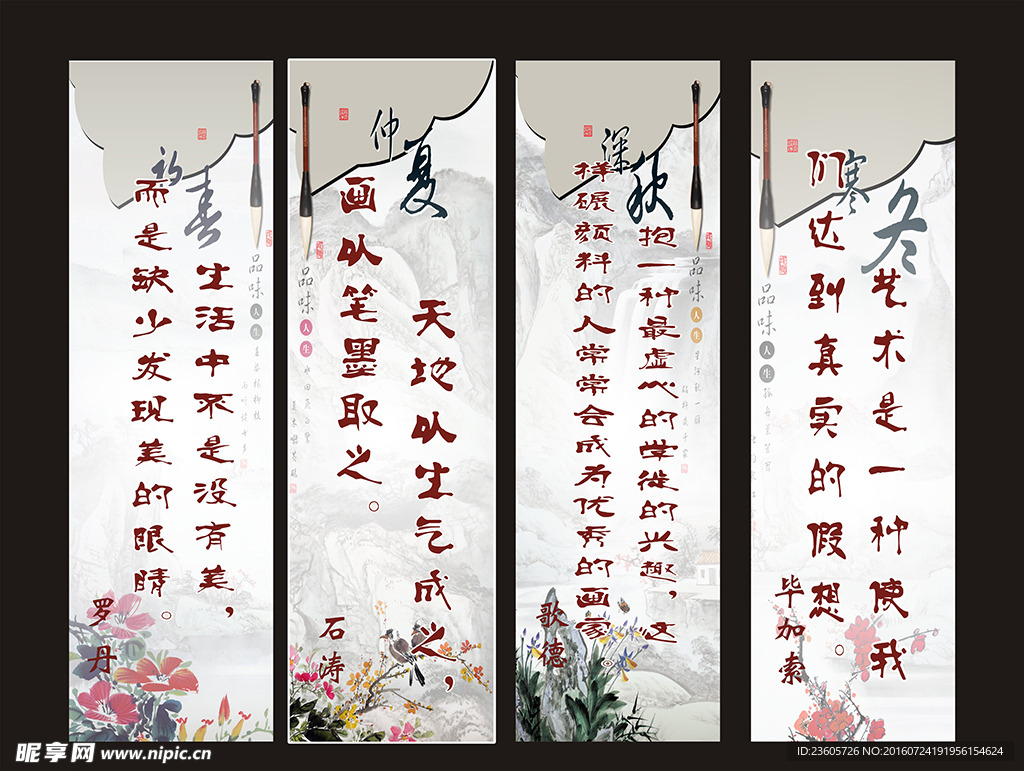 初春
品味人生
生活中不是没有美，
而是缺少发现美的眼睛。
罗丹
仲夏
品味人生
天地以生气成之，
画以笔墨取之。
石涛
深秋
品味人生
抱一种最虚心的学徒的兴趣，这
样碾颜料的人常常会成为优秀的画家。
歌德
寒冬
品味人生
艺术是一种使我
们达到真实的假想。
毕加索
昵享网 www.nipic.cn
ID:23605726 NO:20160724191956154624